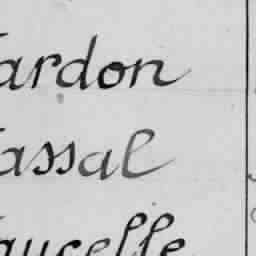 ardon
assal
aucelle